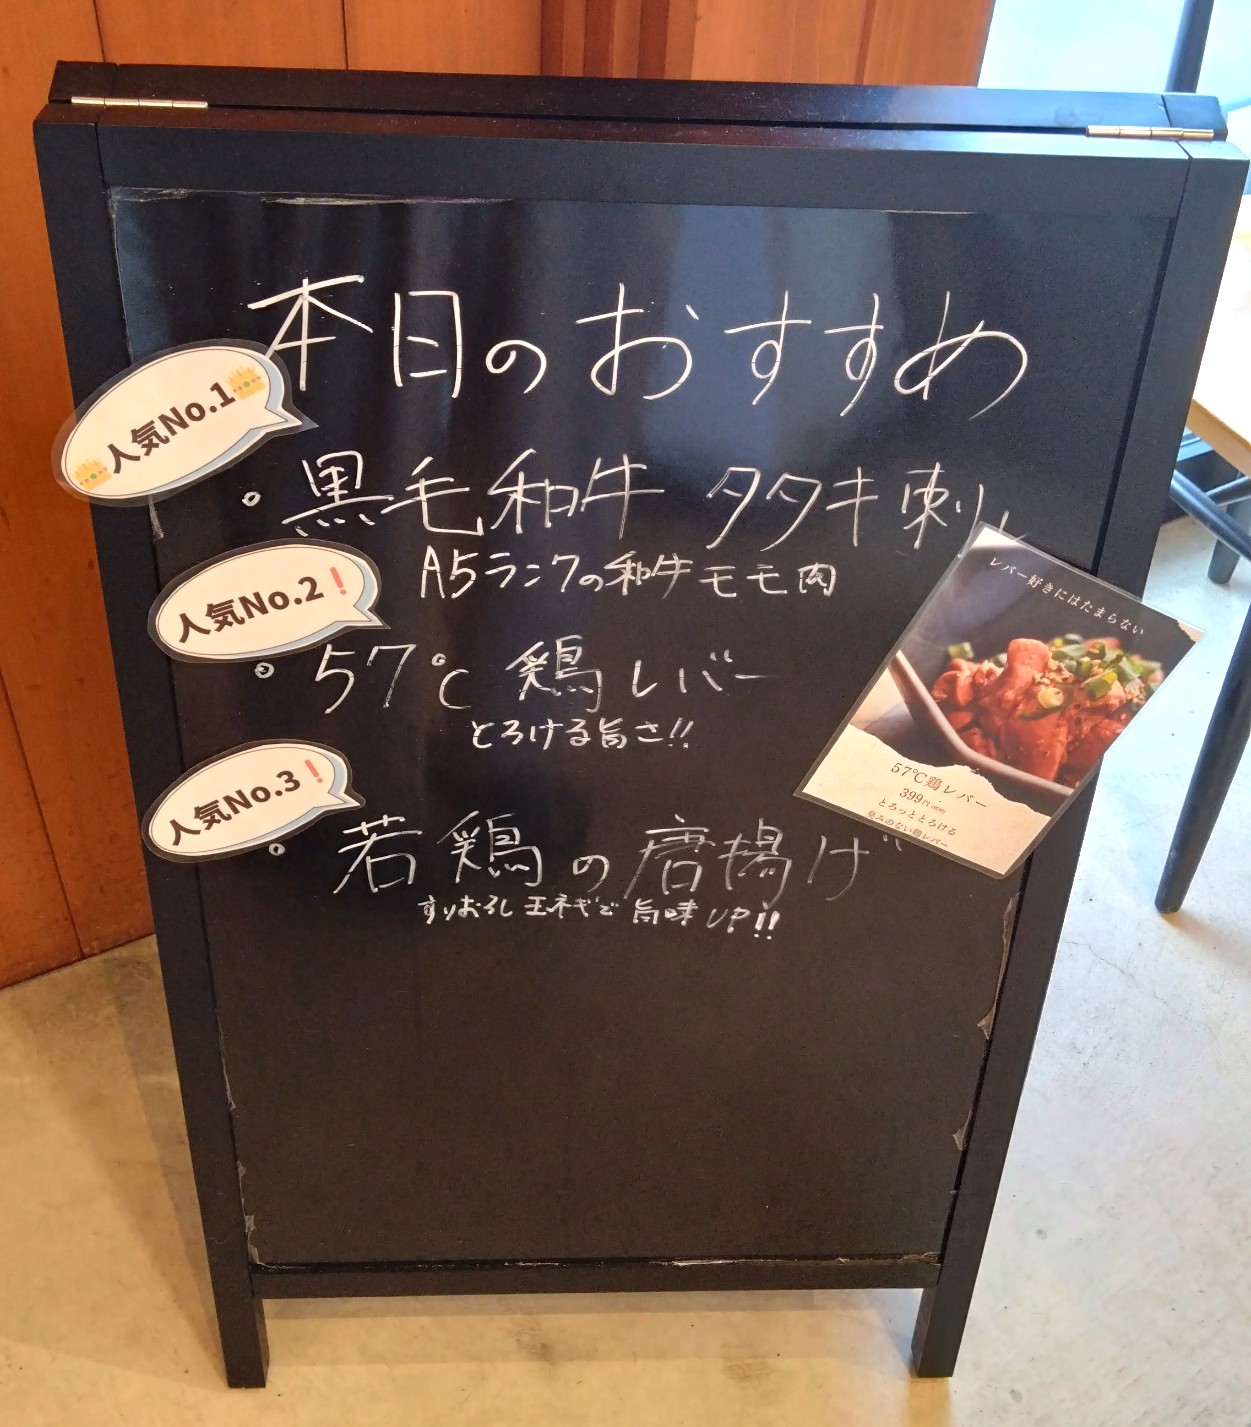 本日のおすすめ
人気No.1
黒毛和牛 タタキ刺し
A5ランクの和牛モモ肉
人気No.2❗
57℃ 鶏レバー
とろける旨さ!!
人気No.3❗
若鶏の唐揚げ
すりおろし玉ネギで旨味UP!!
レバー好きにはたまらない
57℃鶏レバー
399円
とろっととろける
臭みのない鶏レバー